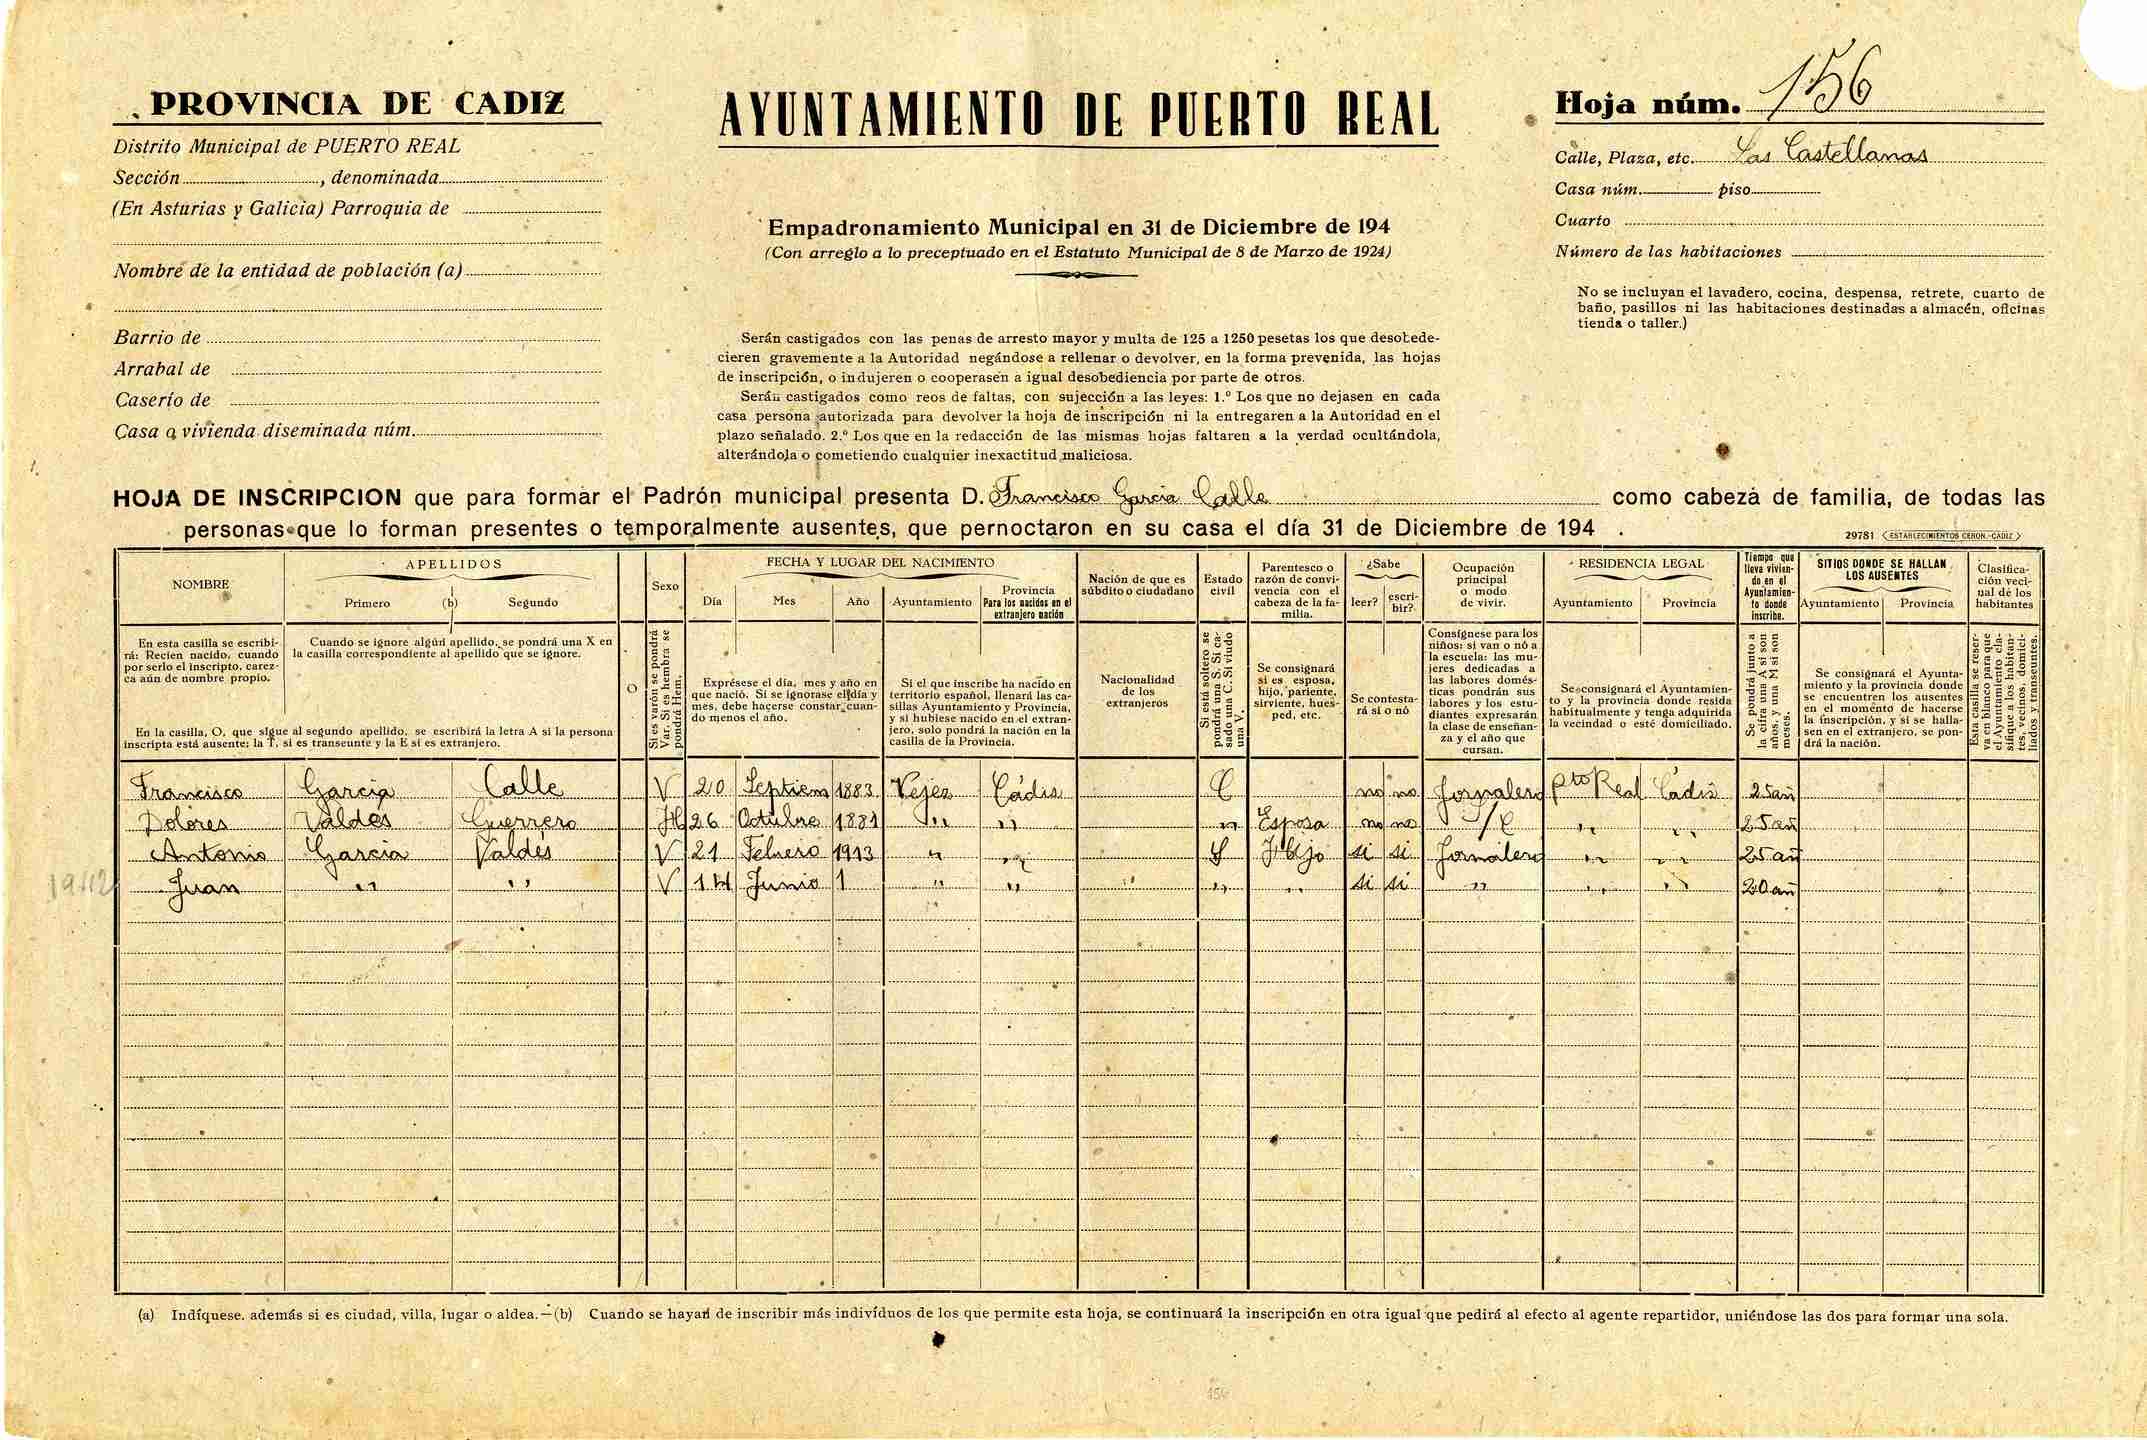 PROVINCIA DE CADIZ
Distrito Municipal de PUERTO REAL
Sección , denominada
(En Asturias y Galicia) Parroquia de
Nombre de la entidad de población (a)
Barrio de
Arrabal de
Caserío de
Casa o vivienda diseminada núm.
AYUNTAMIENTO DE PUERTO REAL
Empadronamiento Municipal en 31 de Diciembre de 194
(Con arreglo a lo preceptuado en el Estatuto Municipal de 8 de Marzo de 1924)
Serán castigados con las penas de arresto mayor y multa de 125 a 1250 pesetas los que desobede-
cieren gravemente a la Autoridad negándose a rellenar o devolver, en la forma prevenida, las hojas
de inscripción, o indujeren o cooperasen a igual desobediencia por parte de otros.
Serán castigados como reos de faltas, con sujección a las leyes: 1.º Los que no dejasen en cada
casa persona autorizada para devolver la hoja de inscripción ni la entregaren a la Autoridad en el
plazo señalado. 2.º Los que en la redacción de las mismas hojas faltaren a la verdad ocultándola,
alterándola o cometiendo cualquier inexactitud maliciosa.
Hoja núm. 156
Calle, Plaza, etc. Las Castellanas
Casa núm. piso
Cuarto
Número de las habitaciones
No se incluyan el lavadero, cocina, despensa, retrete, cuarto de
baño, pasillos ni las habitaciones destinadas a almacén, oficinas
tienda o taller.)
HOJA DE INSCRIPCION que para formar el Padrón municipal presenta D. Francisco Garcia Calle como cabeza de familia, de todas las
personas que lo forman presentes o temporalmente ausentes, que pernoctaron en su casa el día 31 de Diciembre de 194 .
29781 ESTABLECIMIENTOS CERON.-CADIZ
NOMBRE
APELLIDOS
Primero (b) Segundo
O
Sexo
FECHA Y LUGAR DEL NACIMIENTO
Día Mes Año Ayuntamiento
Provincia
Para los nacidos en el
extranjero nación
Nación de que es
súbdito o ciudadano
Estado
civil
Parentesco o
razón de convi-
vencia con el
cabeza de la fa-
milia.
¿Sabe
leer? escri-
bir?
Ocupación
principal
o modo
de vivir.
RESIDENCIA LEGAL
Ayuntamiento Provincia
Tiempo que
lleva vivien-
do en el
Ayuntamien-
to donde
inscribe.
SITIOS DONDE SE HALLAN
LOS AUSENTES
Ayuntamiento Provincia
Clasifica-
ción veci-
ual de los
habitantes
En esta casilla se escribi-
rá: Recien nacido, cuando
por serlo el inscripto, carez-
ca aún de nombre propio.
Cuando se ignore algún apellido, se pondrá una X en
la casilla correspondiente al apellido que se ignore.
En la casilla, O, que sigue al segundo apellido, se escribirá la letra A si la persona
inscripta está ausente; la T, si es transeunte y la E si es extranjero.
O
Si es varón se pondrá
Var. Si es hembra se
pondrá Hem.
Exprésese el día, mes y año en
que nació. Si se ignorase el día y
mes, debe hacerse constar cuan-
do menos el año.
Si el que inscribe ha nacido en
territorio español, llenará las ca-
sillas Ayuntamiento y Provincia,
y si hubiese nacido en el extran-
jero, solo pondrá la nación en la
casilla de la Provincia.
Nacionalidad
de los
extranjeros
Si está soltero se
pondrá una S. Si ca-
sado una C. Si viudo
una V.
Se consignará
si es esposa,
hijo, pariente,
sirviente, hues-
ped, etc.
Se contesta-
rá si o nó
Consígnese para los
niños: si van o nó a
la escuela: las mu-
jeres dedicadas a
las labores domés-
ticas pondrán sus
labores y los estu-
diantes expresarán
la clase de enseñan-
za y el año que
cursan.
Se consignará el Ayuntamien-
to y la provincia donde resida
habitualmente y tenga adquirida
la vecindad o esté domiciliado.
Se pondrá junto a
la cifra una A si son
años, y una M si son
meses.
Se consignará el Ayunta-
miento y la provincia donde
se encuentren los ausentes
en el momento de hacerse
la inscripción, y si se halla-
sen en el extranjero, se pon-
drá la nación.
Esta casilla se reser-
va en blanco para que
el Ayuntamiento cla-
sifique a los habitan-
tes, vecinos, domici-
liados y transeuntes.
Francisco Garcia Calle V 20 Septiem 1883 Vejez Cádiz C no no Jornalero Pto Real Cádiz 25 añ
Dolores Valdés Guerrero H 26 Octubre 1881 " " " Esposa no no " " 25 añ
Antonio Garcia Valdés V 21 Febrero 1913 " " S Hijo si si Jornalero " " 25 añ
Juan " " V 14 Junio 1 " " " " " si si " " " 20 añ
(a) Indíquese. además si es ciudad, villa, lugar o aldea.—(b) Cuando se hayan de inscribir más indivíduos de los que permite esta hoja, se continuará la inscripción en otra igual que pedirá al efecto al agente repartidor, uniéndose las dos para formar una sola.